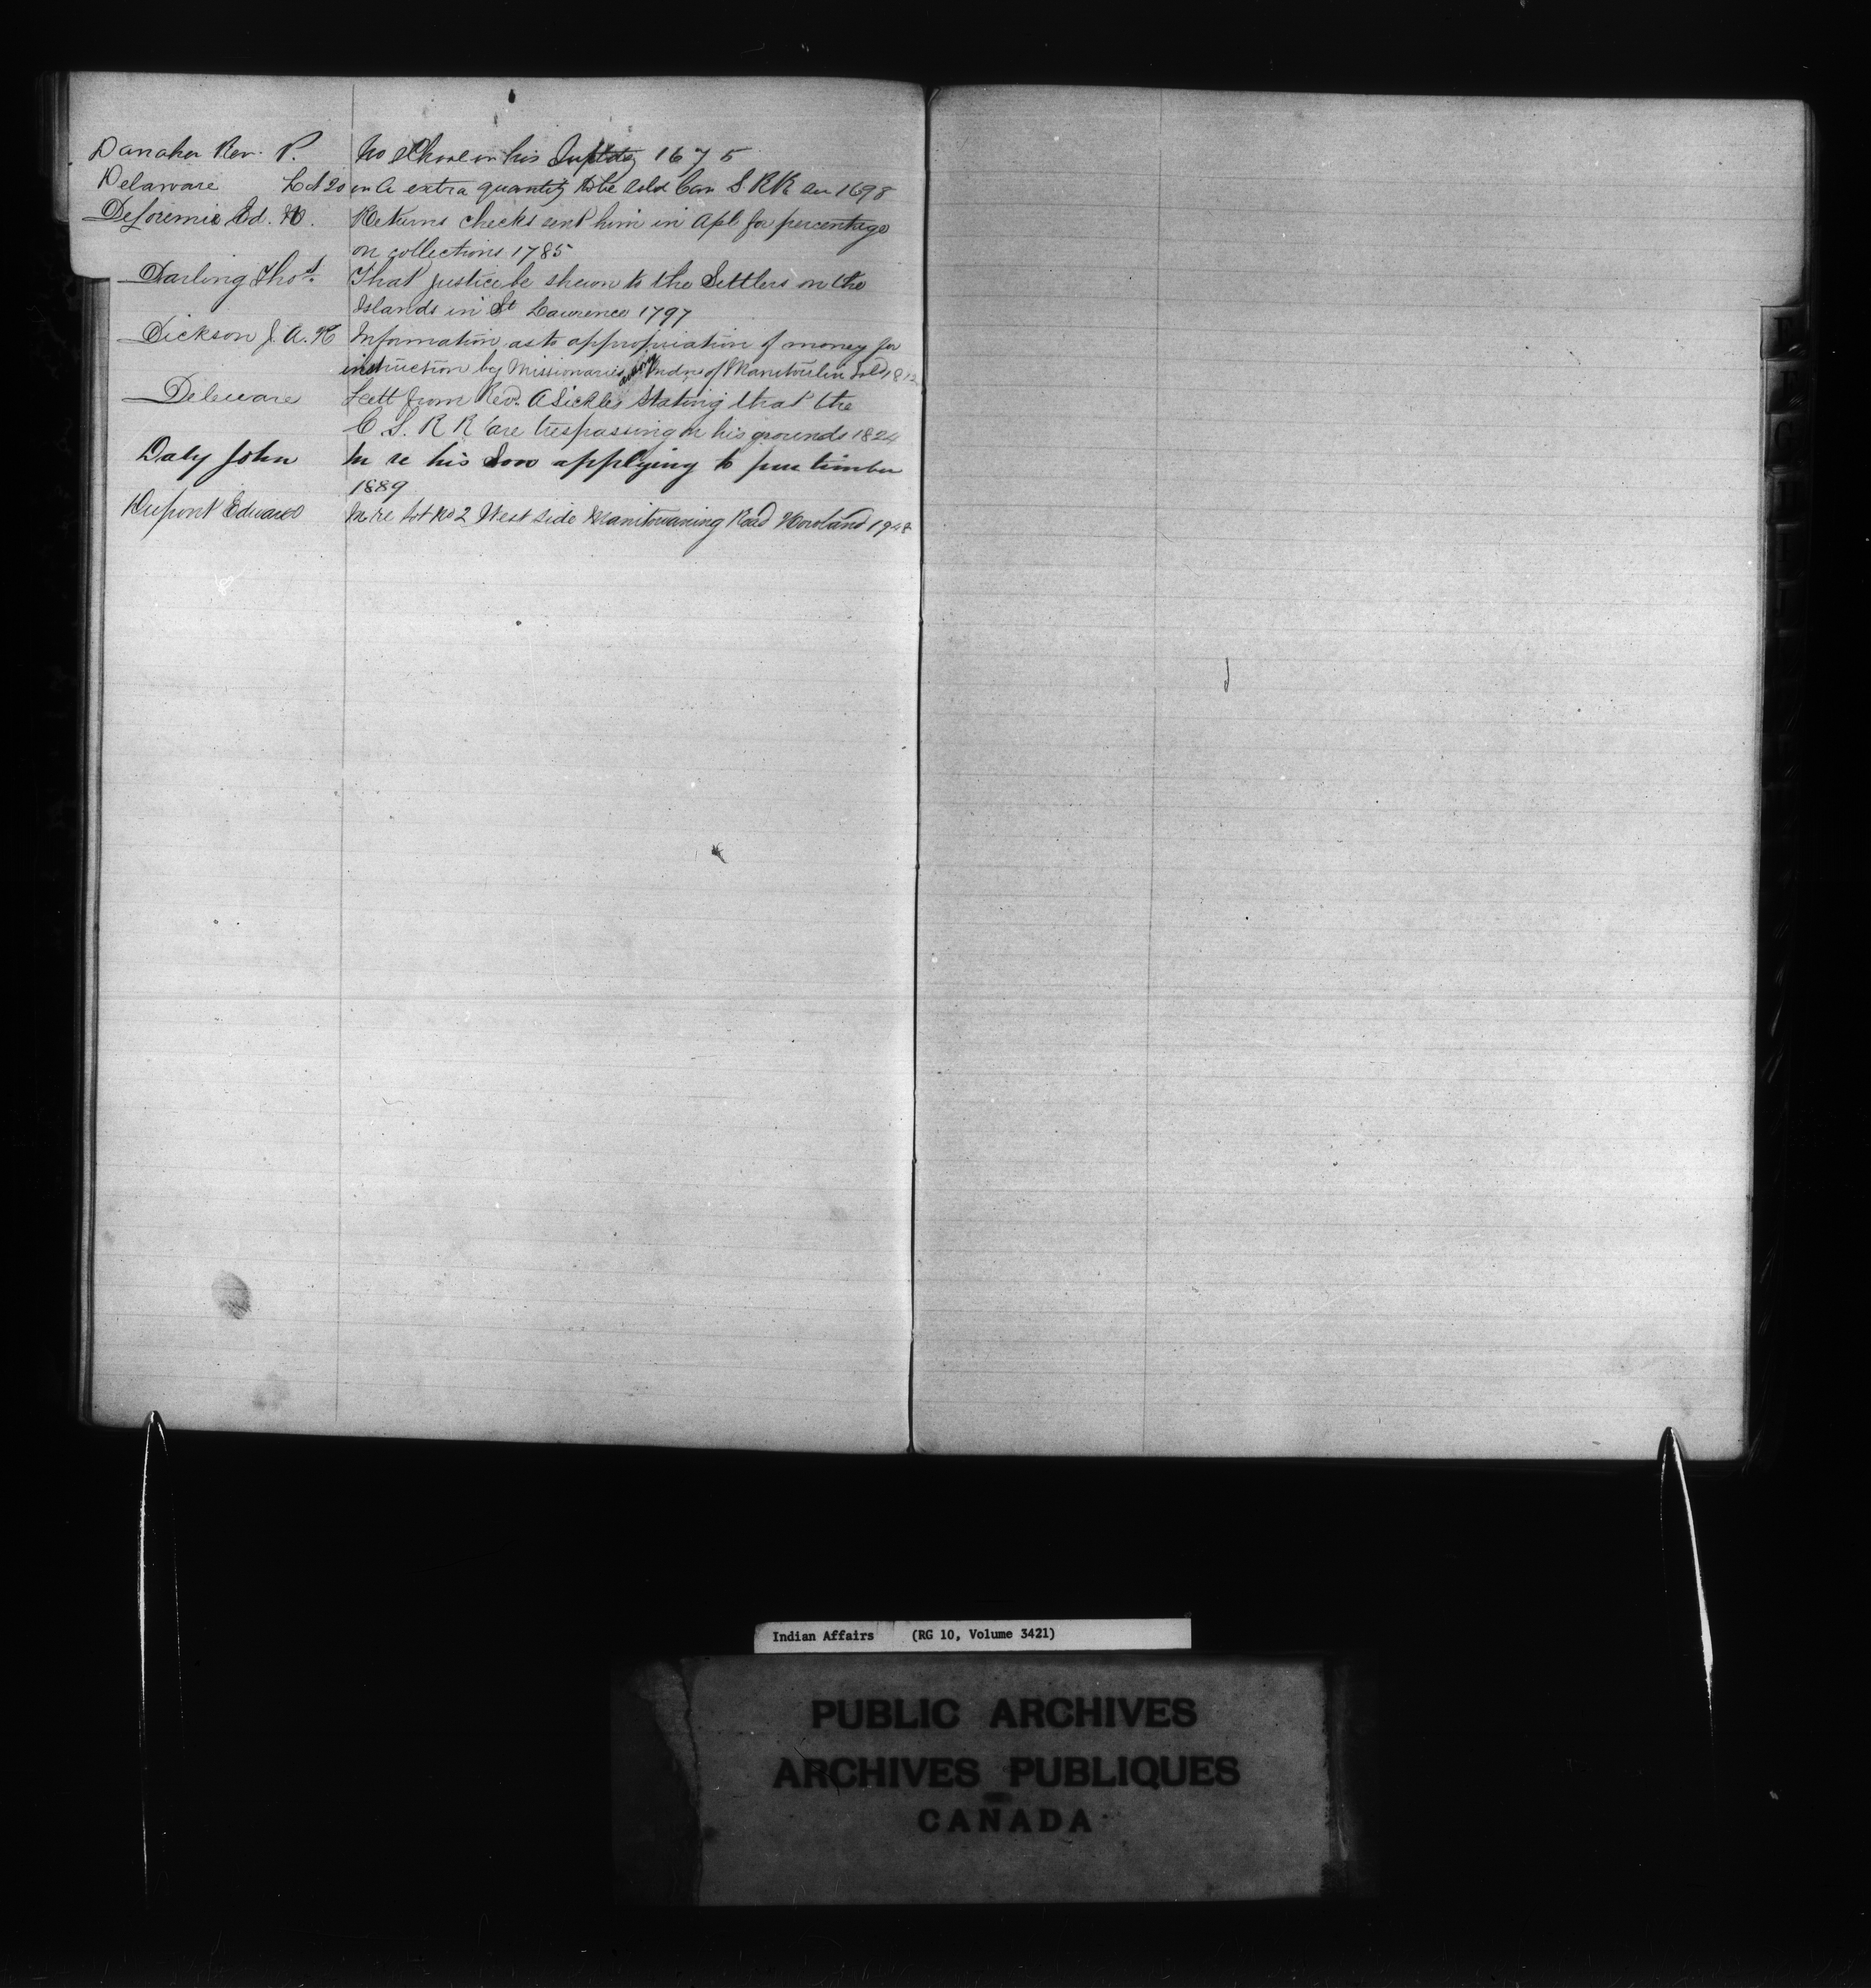 Danaher Rev. P. No School in his Suptdcy 1675
Delaware Lot 20 con A extra quantity to be sold Can S. RR Sec 1698
DeLorimier Ed. N. Returns checks sent him in Apl for percentage
on collections 1785
Darling Thos. That justice be shewn to the Settlers on the
Islands in St Lawrence 1797
Dickson J. A. R Information as to appropriation of money for
instruction by Missionaries among Indns of Manitoulin Isld 1812
Deleware Lett from Revd. A Sickles stating that the
C. S. R R are trespassing on his grounds 1824
Daly John In re his Son applying to pur timber
1889
Dupont Edward In re Lot No 2 West side Manitowaning Road Howland 1948
Indian Affairs (RG 10, Volume 3421)
PUBLIC ARCHIVES
ARCHIVES PUBLIQUES
CANADA